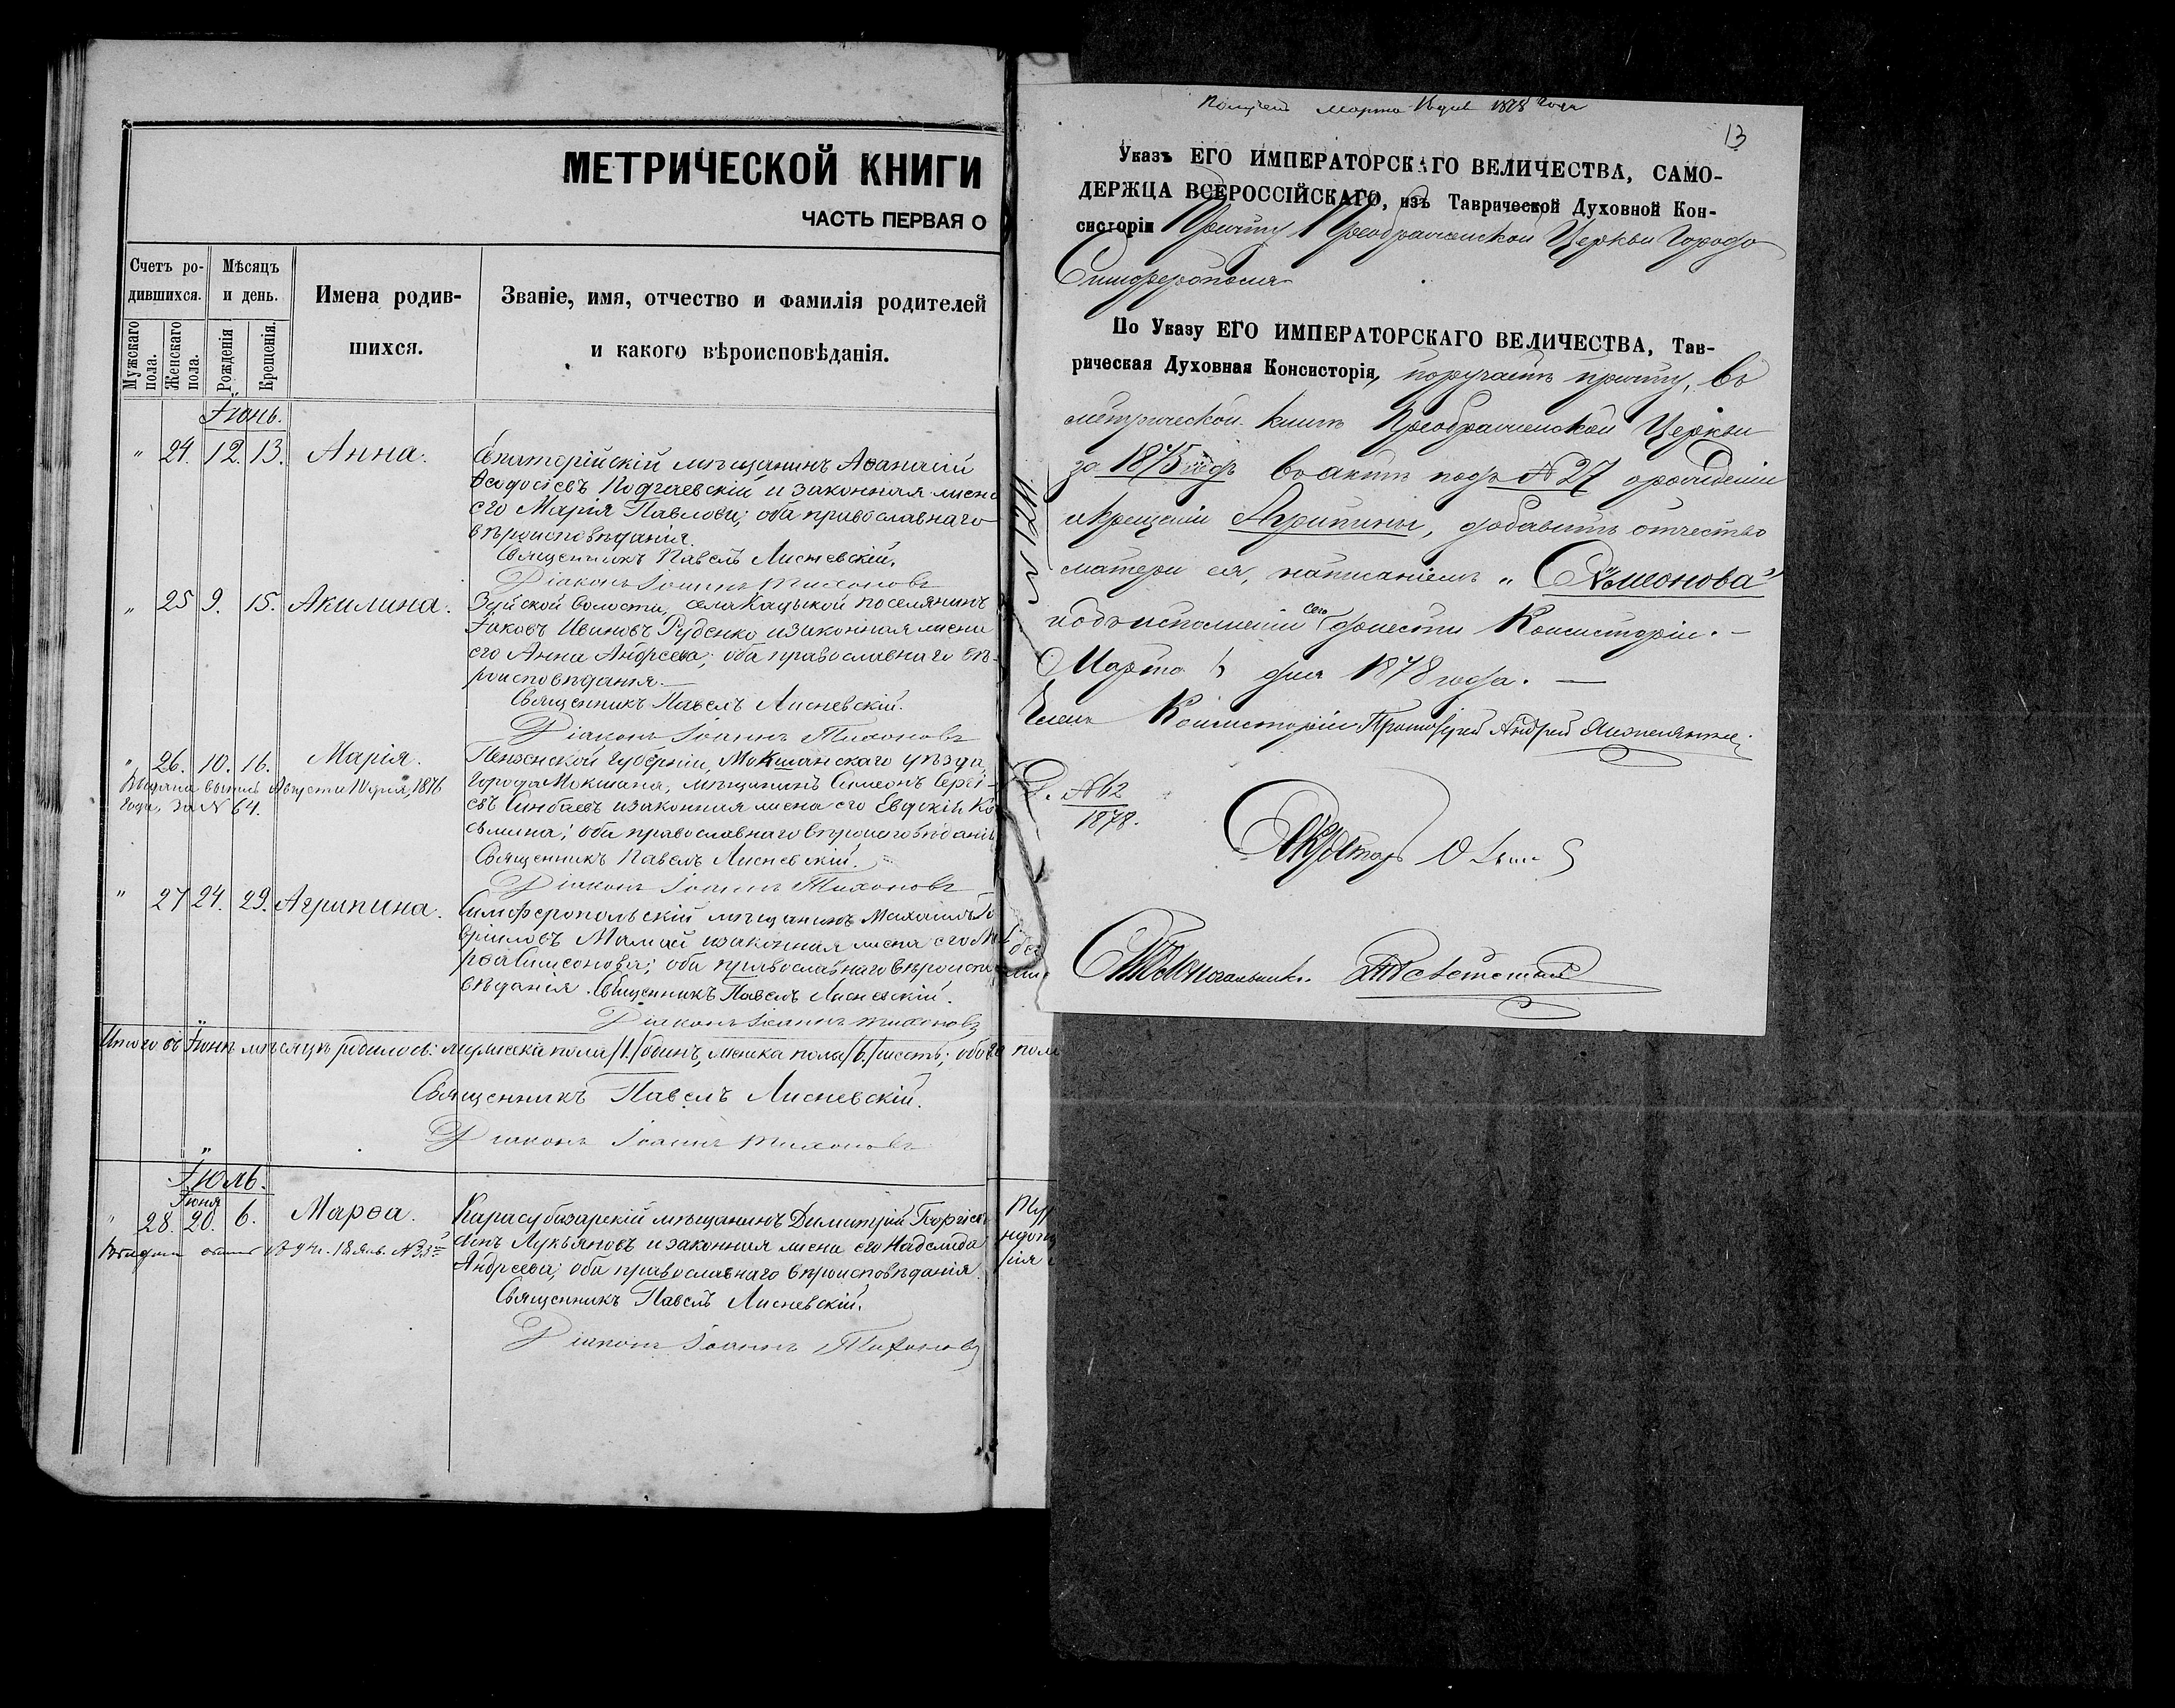 МЕТРИЧЕСКОЙ КНИГИ
ЧАСТЬ ПЕРВАЯ О
Счетъ ро-
дившихся.
Мѣсяцъ
и день.
Имена родив-
шихся.
Званіе, имя, отчество и фамилія родителей
и какого вѣроисповѣданія.
Мужскаго
пола.
Женскаго
пола.
Рожденія
Крещенія.
Іюнь.
" 24. 12. 13. Анна.
Евпаторійскій мѣщанинъ Аѳанасій
Ѳеодосіевъ Подгаевскій и законная жена
его Марія Павлова; оба православнаго
вѣроисповѣданія.
Священникъ Павелъ Лисневскій.
Діаконъ Іоаннъ Тихоновъ
" 25 9. 15. Акилина.
Зуйской волости, села поселянинъ
Іаковъ Ивановъ Руденко и законная жена
его Анна Андреева; оба православнаго вѣ-
роисповѣданія.
Священникъ Павелъ Лисневскій.
Діаконъ Іоаннъ Тихоновъ
" 26. 10. 16. Марія.
Выдана выпись Августа 10 дня, 1876
года, за № 64.
Пензенской Губерніи, Мокшанскаго уѣзда,
города Мокшана, мѣщанинъ Симеонъ Сергі-
евъ Синбаевъ и законная жена его Евдокія Ко
сьмина; оба православнаго вѣроисповѣданія
Священникъ Павелъ Лисневскій.
Діаконъ Іоаннъ Тихоновъ
" 27 24. 29. Агрипина.
Симферопольскій мѣщанинъ Михаилъ Га
вріиловъ Мамай и законная жена его Ма
рѳа Симеонова; оба православнаго вѣроиспо
вѣданія. Священникъ Павелъ Лисневскій.
Діаконъ Іоаннъ Тихоновъ
Итого въ Іюнѣ мѣсяцѣ родилось: мужеска пола /1./ одинъ, женска пола /6./ шесть; обоего пола
Священникъ Павелъ Лисневскій.
Діаконъ Іоаннъ Тихоновъ
Іюль.
Іюня
" 28. 20. 6. Марѳа.
Выдана выпись 18 Янв. № 33
Карасубазарскій мѣщанинъ Димитрій Георгіев
Лукьяновъ и законная жена его Надежда
Андреева; оба православнаго вѣроисповѣданія.
Священникъ Павелъ Лисневскій.
Діаконъ Іоаннъ Тихоновъ
Полученъ Марта 1878 года
13
Указъ ЕГО ИМПЕРАТОРСКАГО ВЕЛИЧЕСТВА, САМО-
ДЕРЖЦА ВСЕРОССІЙСКАГО, изъ Таврической Духовной Кон-
систоріи Причту Преображенской Церкви Города
Симферополя
По Указу ЕГО ИМПЕРАТОРСКАГО ВЕЛИЧЕСТВА, Тав-
рическая Духовная Консисторія, поручаетъ причту, въ
метрической книгѣ Преображенской Церкви
за 1875 годъ въ актѣ подъ № 27 о рожденіи
и крещеніи Агрипины, добавить отчество
матери ея, написаніемъ „Сѵмеонова"
и объ исполненіи сего донести Консисторіи. —
Марта дня 1878 года. —
Членъ Консисторіи Протоіерей Андрей
№ 62
1878.
Секретарь
Столоначальникъ